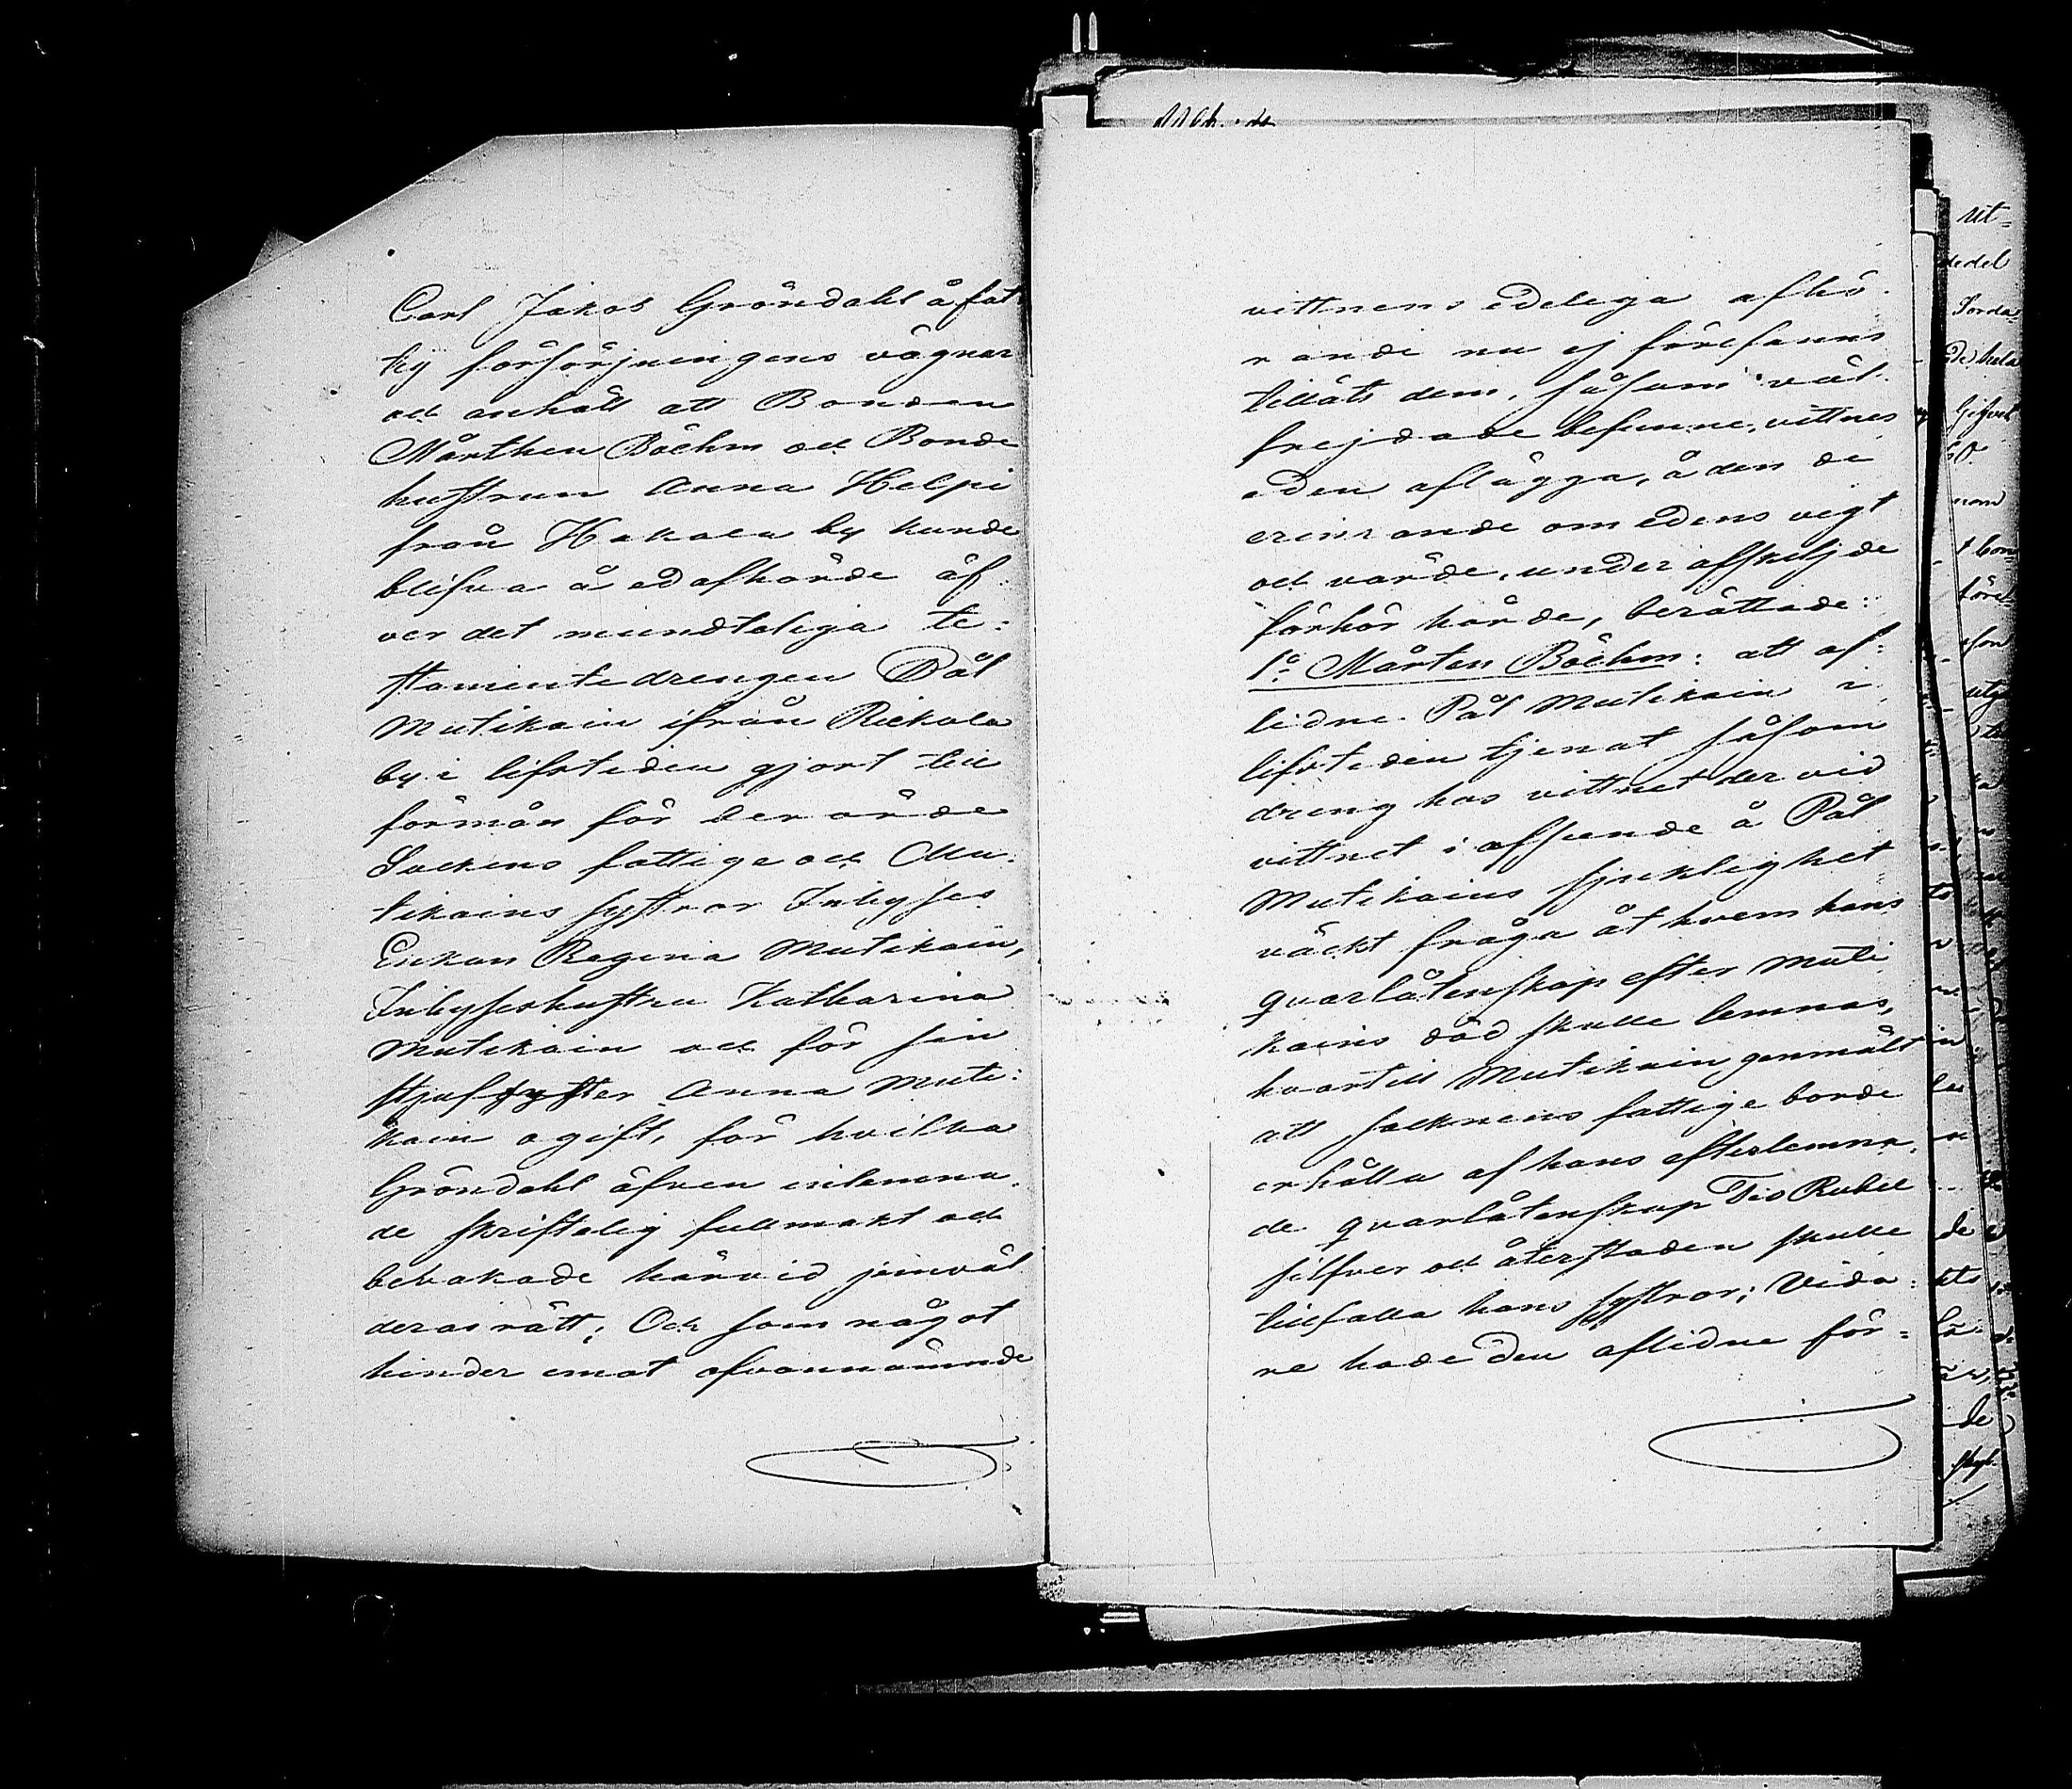 Carl Jakob Gröndahl å fat
tig försörjningens vägnar
och anhöll att Bonden
Mårthen Böehm och Bonde
hustrun Anna Helpi
från Hakala by kunde
blifva å ed afhörde öf:
ver det mundtliga te:
stamente drengen Påhl
Mutikain ifrån Riekala
by i lifstiden gjort till
förmån för der arde
Sockens fattige och Mu:
tikains systrar Inhyses
Enkan Regina Mutikain,
Inhyseshustru Katharina
Mutikain och för sin
stjufsyster Anna Muti:
kain ogift, för hvilka
Gröndahl äfven inlemna:
de skriftelig fullmakt och
bevakade härvid jemväl
deras rätt; Och som något
hinder emot ofvannämnde
vittnens edeliga afhö:
rande nu ej förefanns
tilläts dem, såsom väl:
frejdade befunne, vittnes
eden aflägga, å den de
erinrande om Edens vigt
och värde, under afskiljde
förhör hörde, berättade:
1o Mårten Böehm: att af:
lidne Pål Mutikain i
lifstiden tjenat såsom
dreng hos vittnet der vid
vittnet i afseende å Pål
Mutikains sjuklighet
väckt fråga åt hvem hans
qvarlåtenskap efter Muti
kains död skulle lemnas,
hvartill Mutikain genmält
att socknens fattige borde
erhålla af hans efterlemna:
de qvarlåtenskap Tio Rubel
silfver och återstoden skulle
tillfalla hans systrar; Vida:
re hade den aflidne för=
ut=
dedel
Jorda